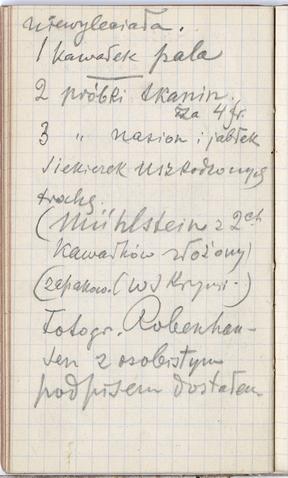 niewyleciała.
1 kawałek pala
2 próbki tkanin.
za 4 fr.
3 " nasion i jabłek
siekierek uszkodzonych
trochę.
(Mühlstein z 2ch
kawałków złożony)
(zapakow. (w skrzyni.)
Fotogr. Robenhau-
sen z osobistym
podpisem dostałem